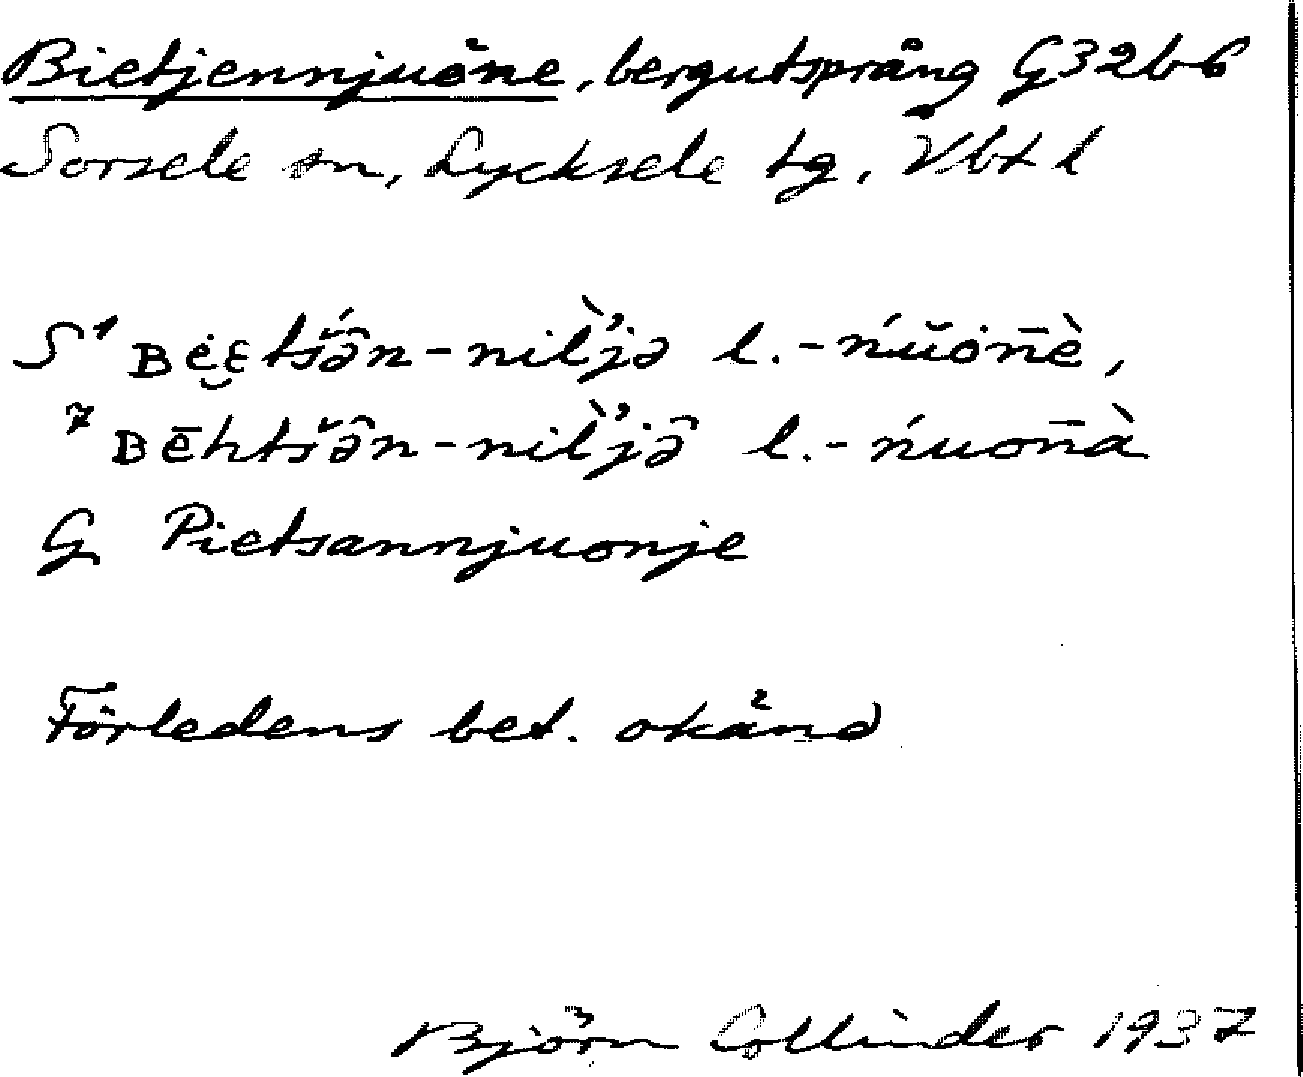 Bietjennjuöne, bergutsprång G32b6
Sorsele sn, Lycksele tg, Vbt l
S¹ ʙėɛ̮tš́ən̂-nil̀'jə l. -ńŭȯn̄è,
⁷ ʙēhtšə̂n-nil̀'jə̂ l. -ńuon̄à
G Pietsannjuonje
Förledens bet. okänd
Björn Collinder 1937